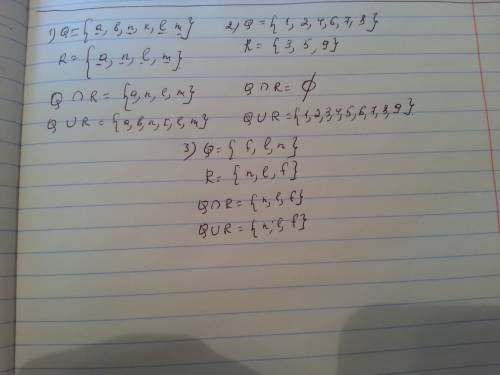 1) Q = { a, b, n, к, l, m }
R = { a, n, l, m }
Q ∩ R = { a, n, l, m }
Q ∪ R = { a, b, n, к, l, m }
2) Q = { 1, 2, 4, 6, 7, 8 }
R = { 3, 5, 9 }
Q ∩ R = ϕ
Q ∪ R = { 1, 2, 3, 4, 5, 6, 7, 8, 9 }
3) Q = { f, l, n }
R = { n, l, f }
Q ∩ R = { n, l, f }
Q ∪ R = { n, l, f }